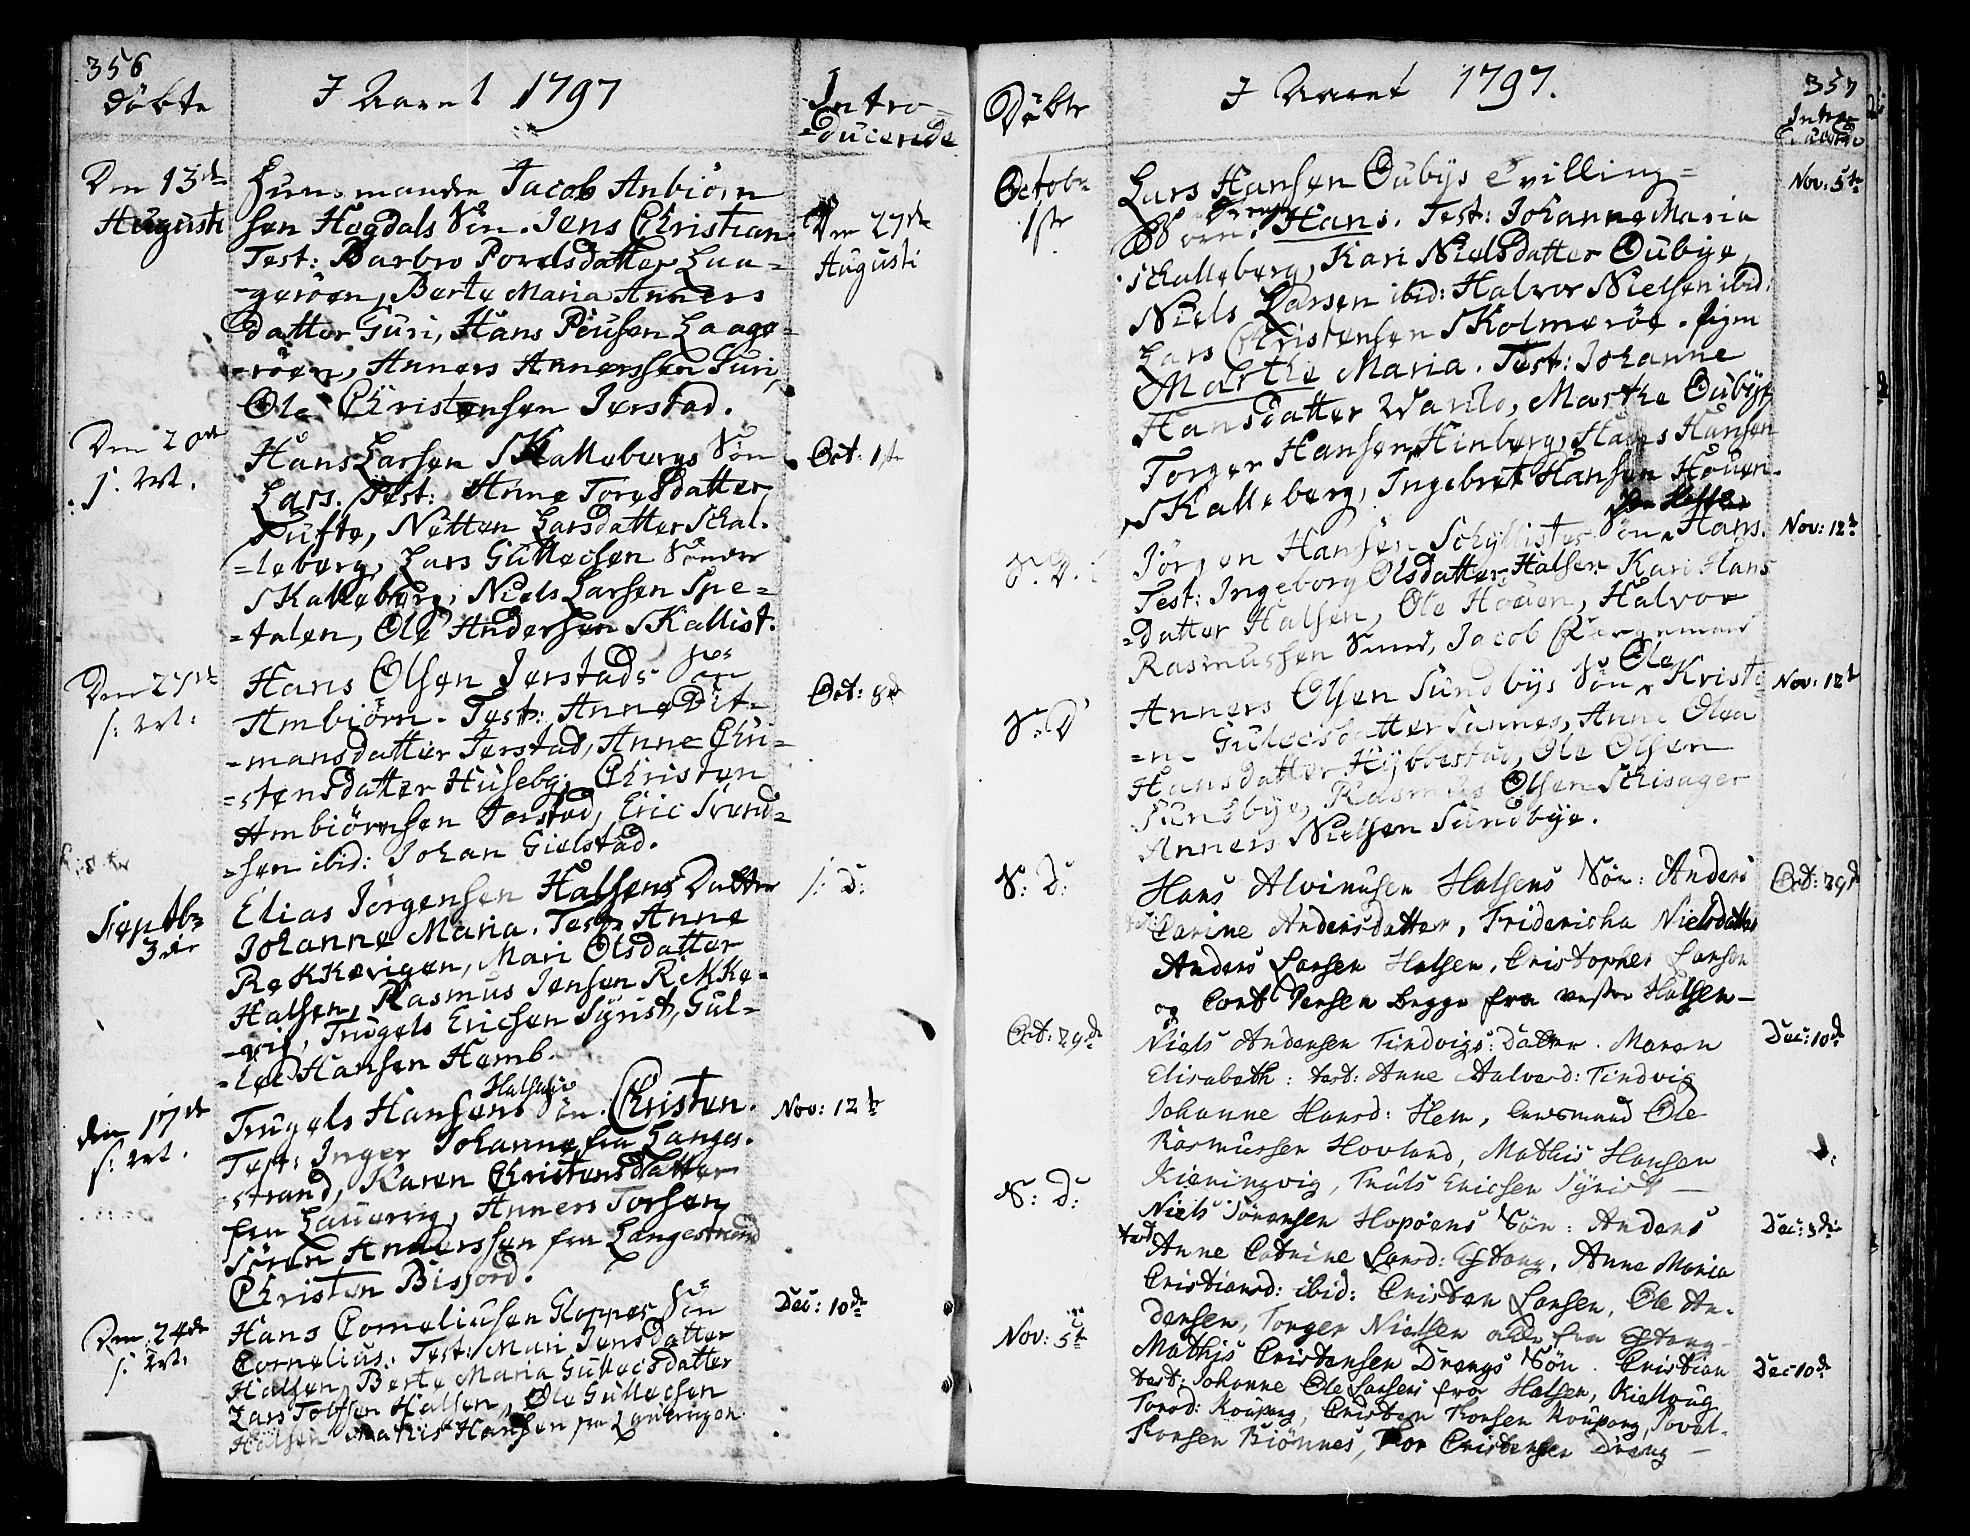 356
Döbte
I Aaret 1797
Intro=
=ducerede
Den 13de
Augusti
Huusmanden Jacob Anbiörn
sen Hogdals Sön. Jens Christian
Test: Barbro Povelsdatter Laa=
=geröen, Berte Maria Anners
datter Guri, Hans Pousen Laage=
=röen, Anners Annerssen Guri,
Ole Christensen Jerstad.
Den 27de
Augusti
Den 20de
Hans Larsen Skallebergs Sön
Lars. Test: Anne Toresdatter
Tufte, Netten Larsdatter Schal=
=leberg, Lars Gullechsen Sönder
Skalleberg, Niels Larsen Spe=
=talen, Ole Andersen Skallist.
Oct: 1ste
Den 27de
Hans Olsen Jerstads Sön
Ambiörn. Test: Anne Dit=
=mansdatter Jerstad, Anne Chri=
=stensdatter Huseby, Christen
Ambiörnsen Jerstad, Eric Svend=
=sen ibid: Johan Gielstad.
Oct: 8de
Septbr
3die
Elias Jörgensen Halsens Datter
Johanne Maria. Test: Anne
Rekkevigen, Mari Olsdatter
Halsen, Rasmus Jensen Rekke=
=vig, Trugels Ericsen Syrist, Gul=
=lec Hansen Hemb.
s: D:
den 17de
Trugels Hansens Halsens Sön. Christen.
Test: Inger Johanne fra Lange=
=strand, Karen Christensdatter
fra Lauervig, Anners Torsen,
Sören Anderssen fra Langestrand
Christen Bisjord.
Nov: 12te
Den 24de
Hans Corneliusen Kloppes Sön
Cornelius. Test: Mari Jensdatter
Halsen, Berte Maria Gullecsdatter
Lars Tolfsen Halsen, Ole Gullechsen
Halsen Mathis Hansen fra Laurvigen
Dec: 10de
357
Döbte
I Aaret 1797.
Octobr
1ste
Lars Hansen Oubys Tvilling=
Börn. Drengen Hans. Test: Johanne Maria
Schalleberg, Kari Nielsdatter Oubye,
Niels Larsen ibid: Halvor Nielsen ibid:
Lars Christensen Skolmeröe. pigen
Marthe Maria. Test: Johanne
Hansdatter Varild, Marthe Oubye
Torger Hansen Hinberg, Hans Hansen
Skalleberg, Ingebret Hansen Houen.
Nov: 5te
S. D.
Jörgen Hansen Schyllistes Sön Hans.
Test: Ingeborg Olsdatter Halsen Kari Hans
=datter Halsen, Ole Houen, Halvor
Rasmussen Sund, Jacob
Nov: 12te
S. D
Anners Olsen Sundbys Sön Ole Kristi
=ne Gulecsdatter Sannes, Anne Olea
Hansdatter Hybbestad, Ole Olsen
Sundbye, Rasmus Olsen Schisager
Anners Nielsen Sundbye.
Nov: 12te
S: D:
Hans Alvinusen Halsens Sön: Anders
Carine Andersdatter, Fridericha Nielsdatter
Anders Larsen Halsen, Cristopher Larsen
og Cort Jensen begge fra vestre Halsen—
Oct: 29de
Oct: 29de
Niels Andersen Tindvigs: Datter. Maren
Elisabeth: test: Anne Halvord: Tindvig
Johanne Hansd: Hem, Ole
Rasmussen Hovland, Mathis Hansen
Kieringvig, Truls Ericsen Syrist —
Dec: 10de
S: D:
Niels Sörensen Hopöens Sön: Anders
test Anne Catrine Larsd: Eftang, Anne Maria
Cristiansd: ibid: Cristen Larsen, Ole An=
dersen, Torger Nielsen alle fra Eftang—
Dec: 3die
Nov: 5te
Mathis Cristensen Drengs Sön. Cristian
test: Johanne Ole Larsens fra Halsen, Kielloug
Torsd: Koupang, Cristen Torsen Koupang, Povel
Torsen Biönnes, Tor Cristensen Dreng —
Dec 10de